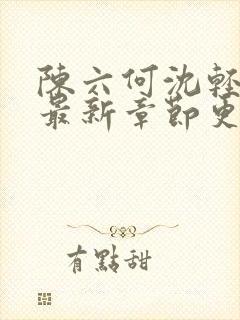 陳六何沈輕
最新章節更
有點甜